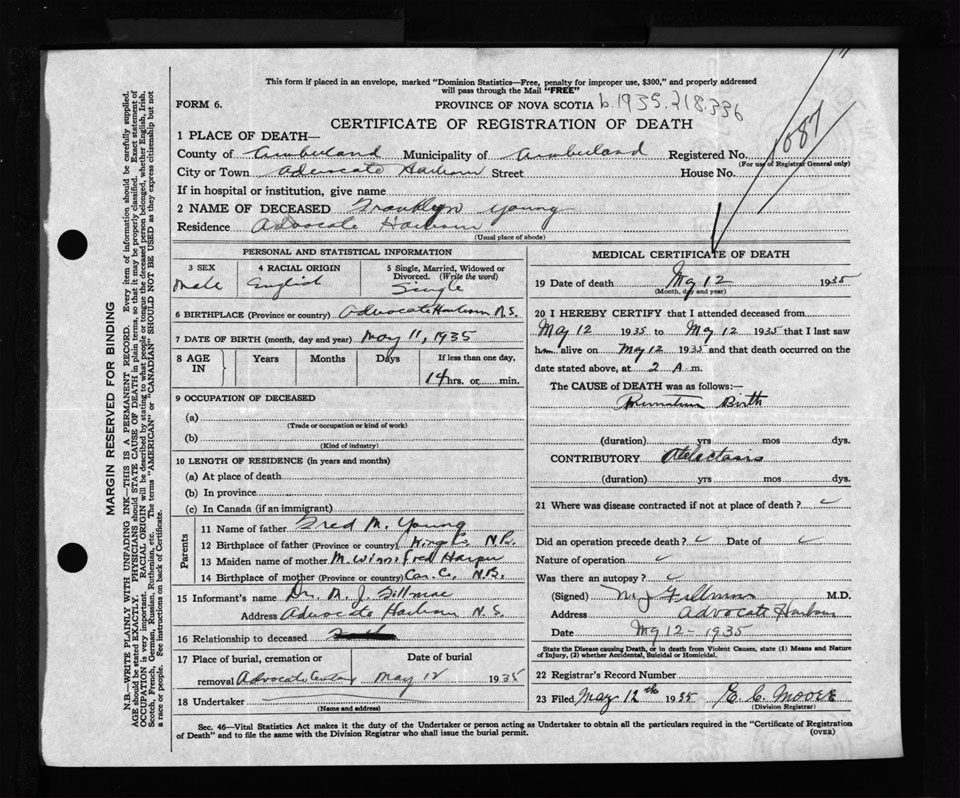 This form if placed in an envelope, marked "Dominion Statistics—Free, penalty for improper use, $300," and properly addressed
will pass through the Mail "FREE"
FORM 6. PROVINCE OF NOVA SCOTIA b.1935.218.336
CERTIFICATE OF REGISTRATION OF DEATH
1687
1 PLACE OF DEATH—
County of Cumberland Municipality of Cumberland Registered No.
(For use of Registrar General only)
City or Town Advocate Harbour Street House No.
If in hospital or institution, give name
2 NAME OF DECEASED Franklyn Young
Residence Advocate Harbour
(Usual place of abode)
PERSONAL AND STATISTICAL INFORMATION
3 SEX 4 RACIAL ORIGIN 5 Single, Married, Widowed or
Divorced. (Write the word)
Male English Single
6 BIRTHPLACE (Province or country) Advocate Harbour N.S.
7 DATE OF BIRTH (month, day and year) May 11, 1935
8 AGE IN Years Months Days If less than one day,
14 hrs. or min.
9 OCCUPATION OF DECEASED
(a)
(Trade or occupation or kind of work)
(b)
(Kind of industry)
10 LENGTH OF RESIDENCE (in years and months)
(a) At place of death
(b) In province
(c) In Canada (if an immigrant)
Parents
11 Name of father Fred M. Young
12 Birthplace of father (Province or country)
13 Maiden name of mother M. Winnifred Harper
14 Birthplace of mother (Province or country) N.B.
15 Informant's name Dr. M. J.
Address Advocate Harbour N.S.
16 Relationship to deceased
17 Place of burial, cremation or Date of burial
removal Advocate May 12 1935
18 Undertaker
(Name and address)
MEDICAL CERTIFICATE OF DEATH
19 Date of death May 12 1935
(Month, day and year)
20 I HEREBY CERTIFY that I attended deceased from
May 12 1935 to May 12 1935 that I last saw
him alive on May 12 1935 and that death occurred on the
date stated above, at 2 A.m.
The CAUSE of DEATH was as follows:—
Premature Birth
(duration) yrs mos dys.
CONTRIBUTORY Atelectasis
(duration) yrs mos dys.
21 Where was disease contracted if not at place of death?
Did an operation precede death? Date of
Nature of operation
Was there an autopsy?
(Signed) M J M.D.
Address Advocate Harbour
Date May 12 - 1935
State the Disease causing Death, or in death from Violent Causes, state (1) Means and Nature
of Injury, (2) whether Accidental, Suicidal or Homicidal.
22 Registrar's Record Number
23 Filed May 12th 1935 E. C. Moore
(Division Registrar)
Sec. 46—Vital Statistics Act makes it the duty of the Undertaker or person acting as Undertaker to obtain all the particulars required in the "Certificate of Registration
of Death" and to file the same with the Division Registrar who shall issue the burial permit. (OVER)
MARGIN RESERVED FOR BINDING
N.B.—WRITE PLAINLY WITH UNFADING INK—THIS IS A PERMANENT RECORD. Every item of information should be carefully supplied.
AGE should be stated EXACTLY. PHYSICIANS should STATE CAUSE OF DEATH in plain terms, so that it may be properly classified. Exact statement of
OCCUPATION is very important. RACIAL ORIGIN will be described by stating to what people or tongue the deceased person belonged, whether English, Irish,
Scotch, French, German, Russian, Ruthenian, etc. The terms "AMERICAN" or "CANADIAN" SHOULD NOT BE USED as they express citizenship but not
a race or people. See instructions on back of Certificate.